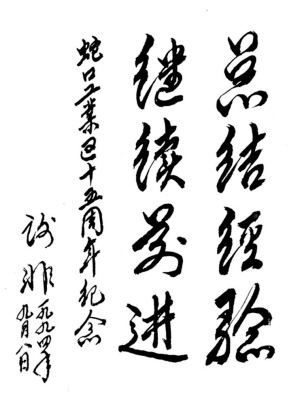 总结经验
继续前进
蛇口工业区十五周年纪念
谢非
一九九四年
九月八日